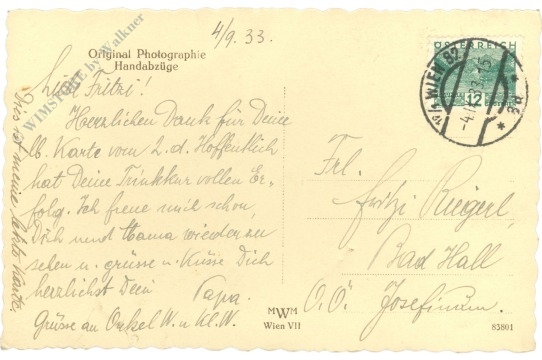 4/9. 33.
Original Photographie
Handabzüge
WIMSTORE by Walkner
Liebe Fritzi!
Herzlichen Dank für Deine
lb. Karte vom 2. d. Hoffentlich
hat Deine Trinkkur vollen Er-
folg. Ich freue mich schon,
Dich nebst Mama wieder zu
sehen u. grüsse u. küsse Dich
herzlichst Dein Papa.
Grüsse an Onkel W. u. Kl. W.
Dies ist meine letzte Karte.
ÖSTERREICH
12
WIEN 82
Frl.
Fritzi Riegerl,
Bad Hall
O.Ö. Josefinum.
MWM
Wien VII
83801